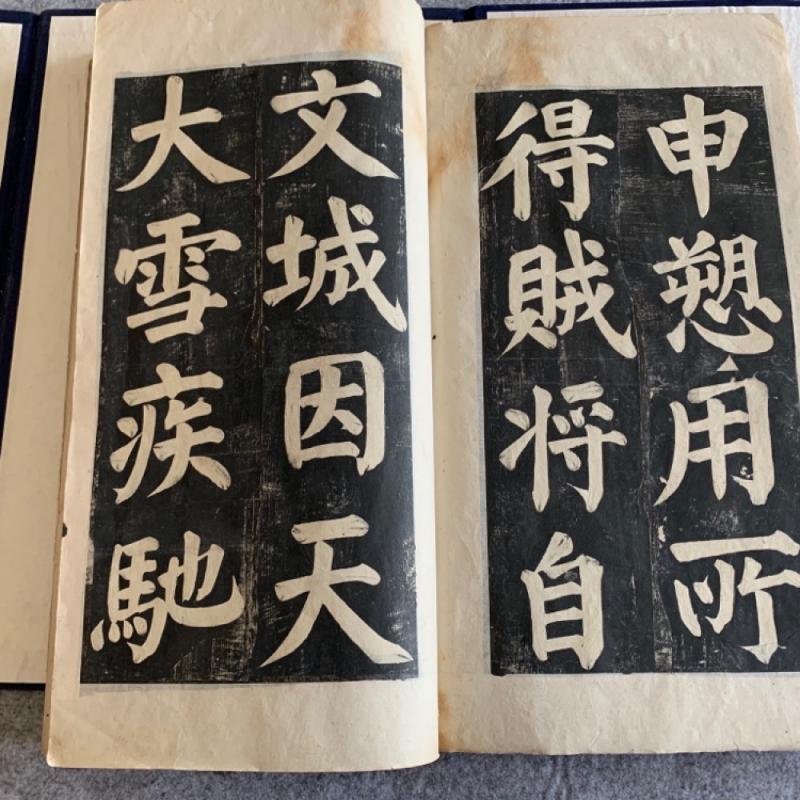 申愬用所
得賊將自
文城因天
大雪疾馳